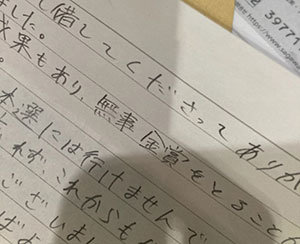 備してくださってありが
ました。
成果もあり、無事 金賞をとること
本選には行けませんで
れず、これからも
ございまし
ばよ
39771
https://www.saga